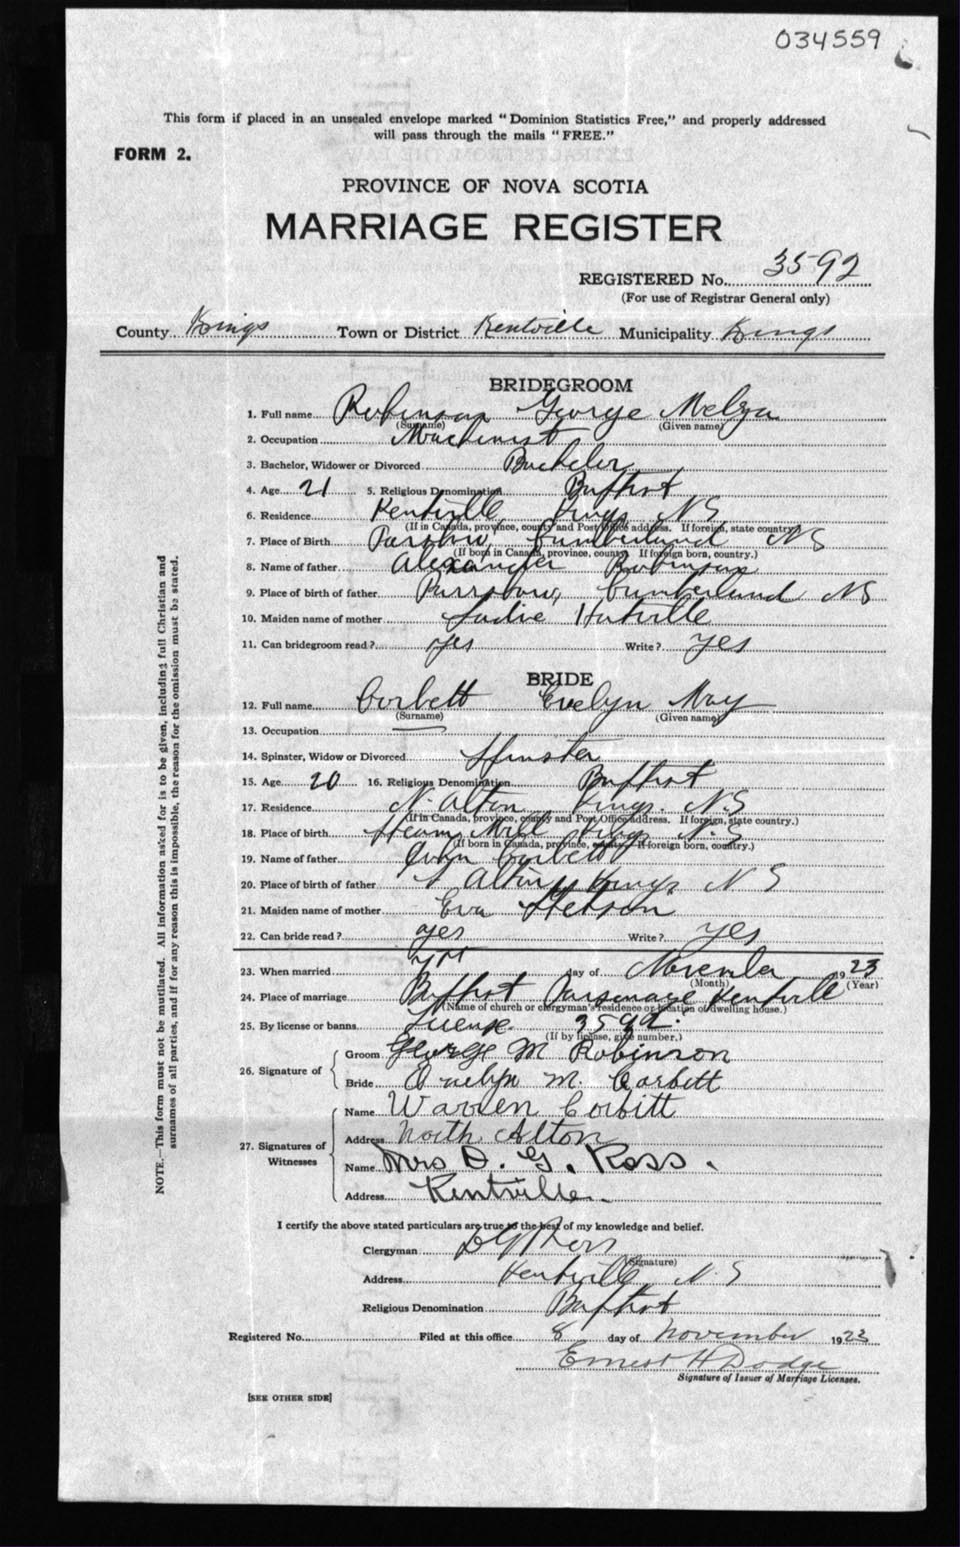 034559
This form if placed in an unsealed envelope marked "Dominion Statistics Free," and properly addressed
will pass through the mails "FREE."
FORM 2.
PROVINCE OF NOVA SCOTIA
MARRIAGE REGISTER
REGISTERED No. 3592
(For use of Registrar General only)
County Kings Town or District Kentville Municipality Kings
BRIDEGROOM
1. Full name Robinson George Melza
(Surname) (Given name)
2. Occupation Machinist
3. Bachelor, Widower or Divorced Bachelor
4. Age 21 5. Religious Denomination Baptist
6. Residence Kentville, Kings NS
(If in Canada, province, county and Post Office address. If foreign, state country.)
7. Place of Birth Parrsboro, Cumberland NS
(If born in Canada, province, county. If foreign born, country.)
8. Name of father Alexander Robinson
9. Place of birth of father Parrsboro, Cumberland NS
10. Maiden name of mother Sadie
11. Can bridegroom read? yes Write? yes
BRIDE
12. Full name Corbett Evelyn May
(Surname) (Given name)
13. Occupation
14. Spinster, Widow or Divorced Spinster
15. Age 20 16. Religious Denomination Baptist
17. Residence N. Alton Kings. N.S
(If in Canada, province, county and Post Office address. If foreign, state country.)
18. Place of birth Steam Mill Kings N.S
(If born in Canada, province, county. If foreign born, country.)
19. Name of father John Corbett
20. Place of birth of father N Alton Kings N S
21. Maiden name of mother Eva Stetson
22. Can bride read? yes Write? yes
23. When married day of November 1923
(Month) (Year)
24. Place of marriage Baptist Parsonage Kentville
(Name of church or clergyman's residence or location of dwelling house.)
25. By license or banns License 3592.
(If by license, give number.)
26. Signature of
Groom George M Robinson
Bride Evelyn M. Corbett
27. Signatures of Witnesses
Name Warren Corbitt
Address North Alton
Name Mrs D. G. Ross.
Address Kentville.
I certify the above stated particulars are true to the best of my knowledge and belief.
Clergyman D G Ross
(Signature)
Address Kentville N.S
Religious Denomination Baptist
Registered No. Filed at this office 8 day of November 1923
Ernest H Dodge
Signature of Issuer of Marriage Licenses.
[SEE OTHER SIDE]
NOTE.—This form must not be mutilated. All information asked for is to be given, including full Christian and
surnames of all parties, and if for any reason this is impossible, the reason for the omission must be stated.